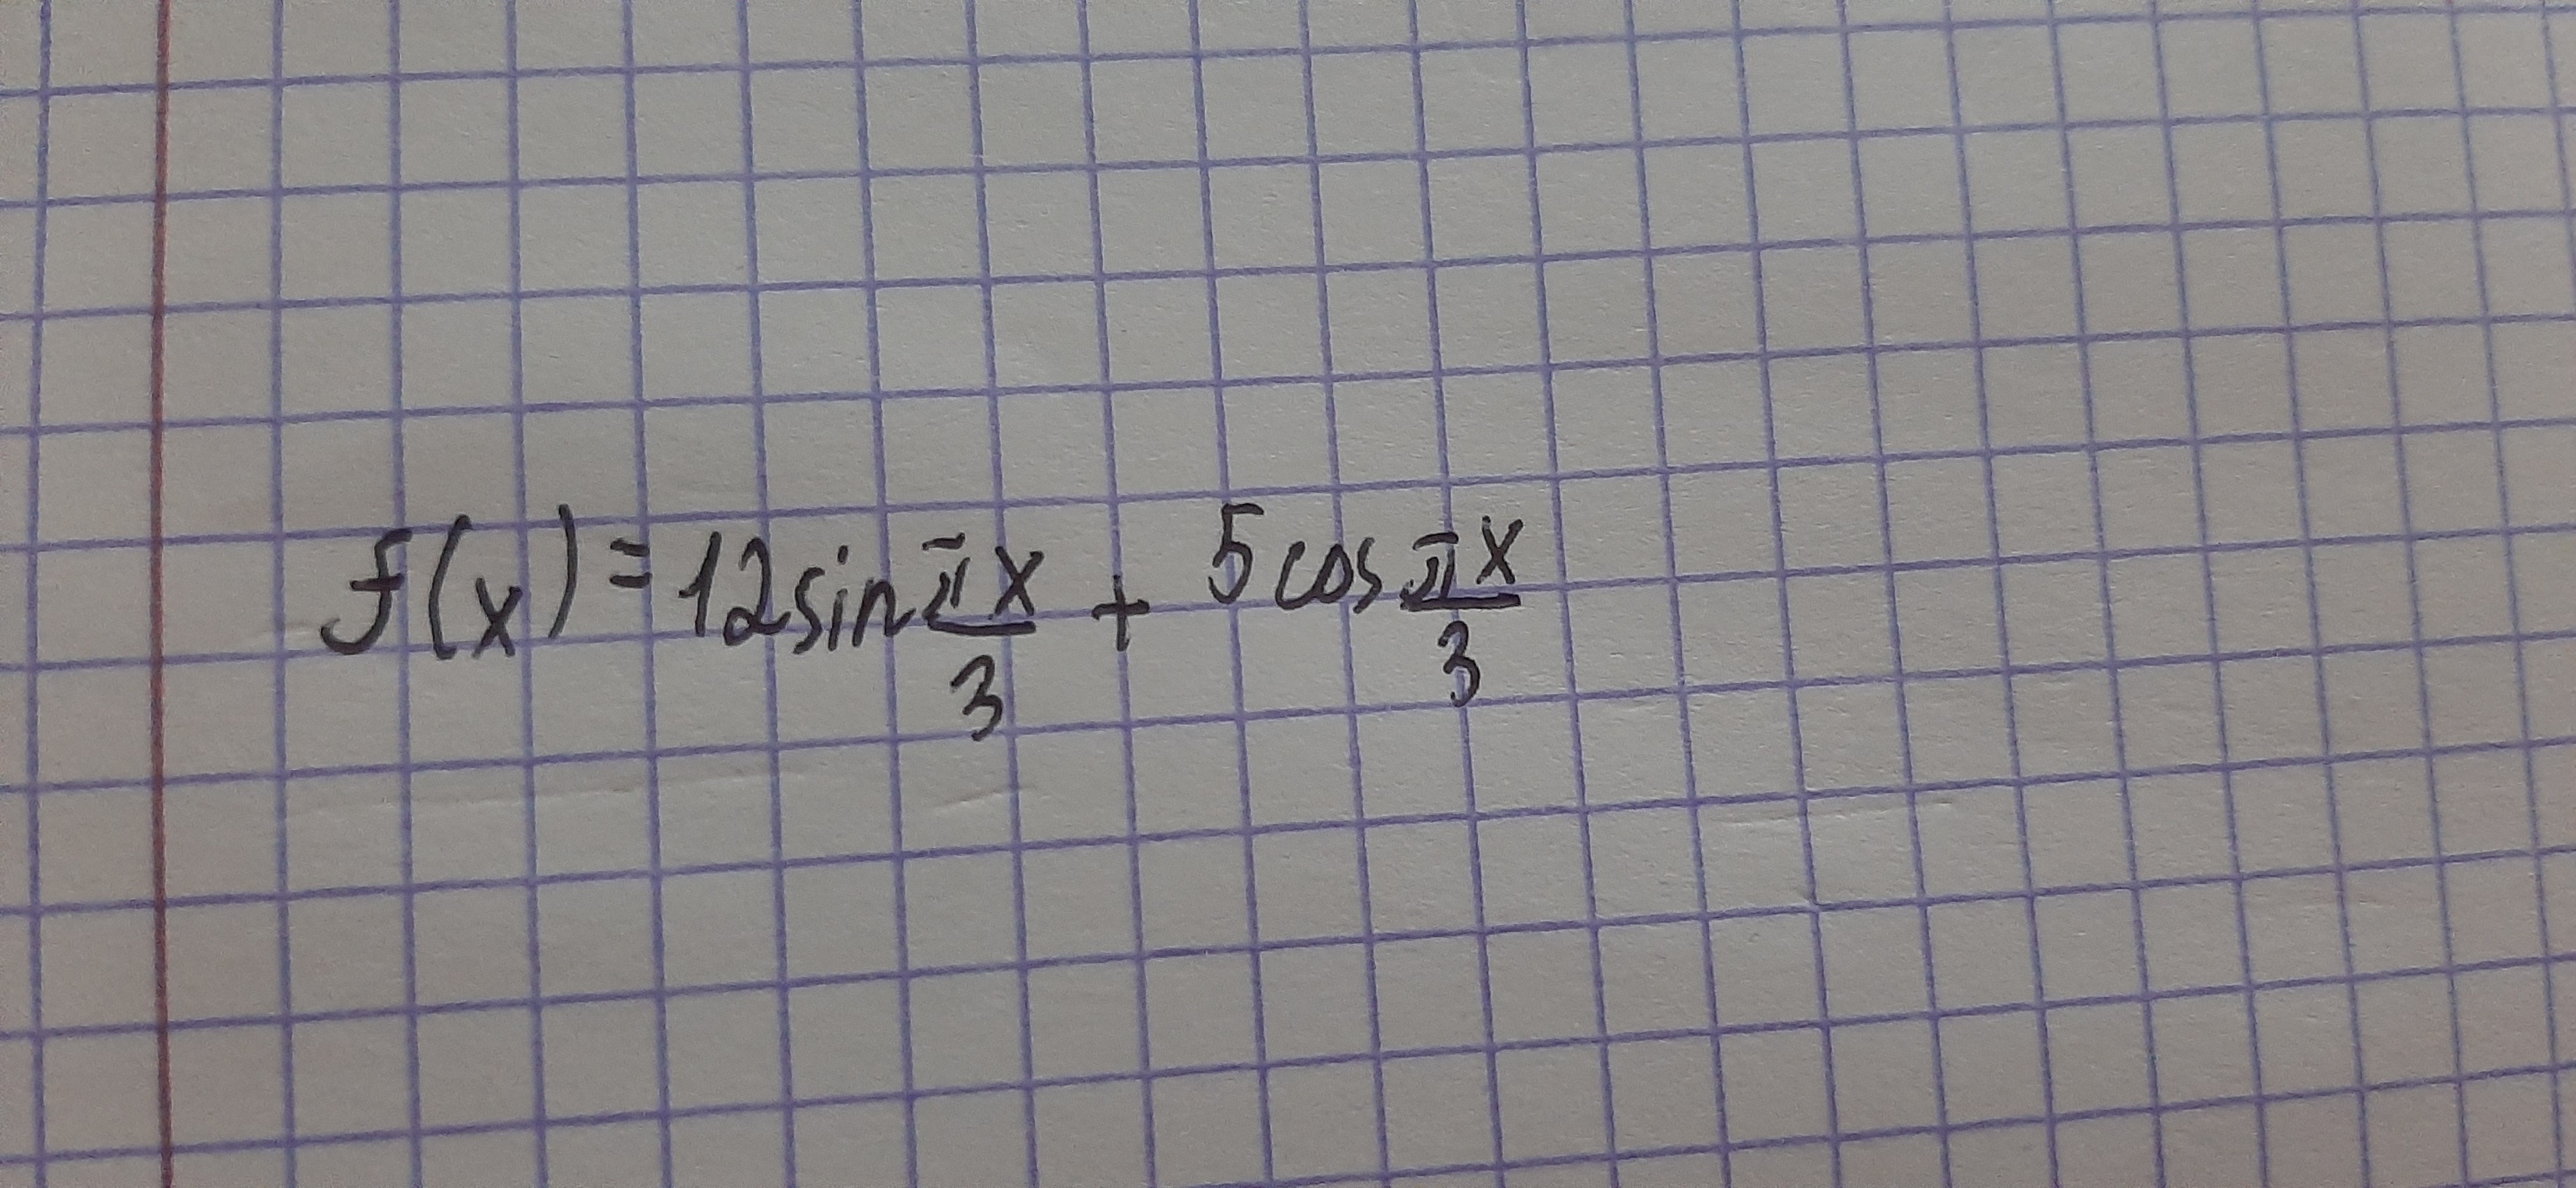 f(x) = 12sin πx/3 + 5cos πx/3